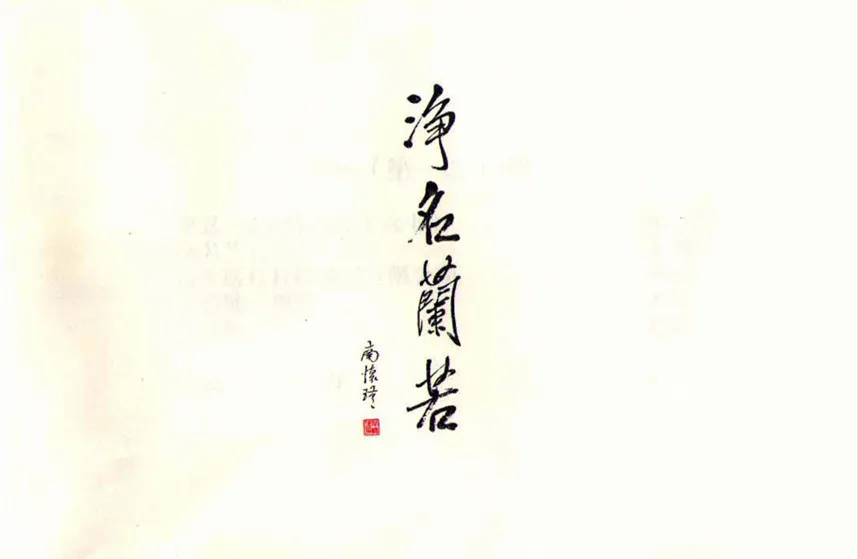 净名蘭若
南懷瑾